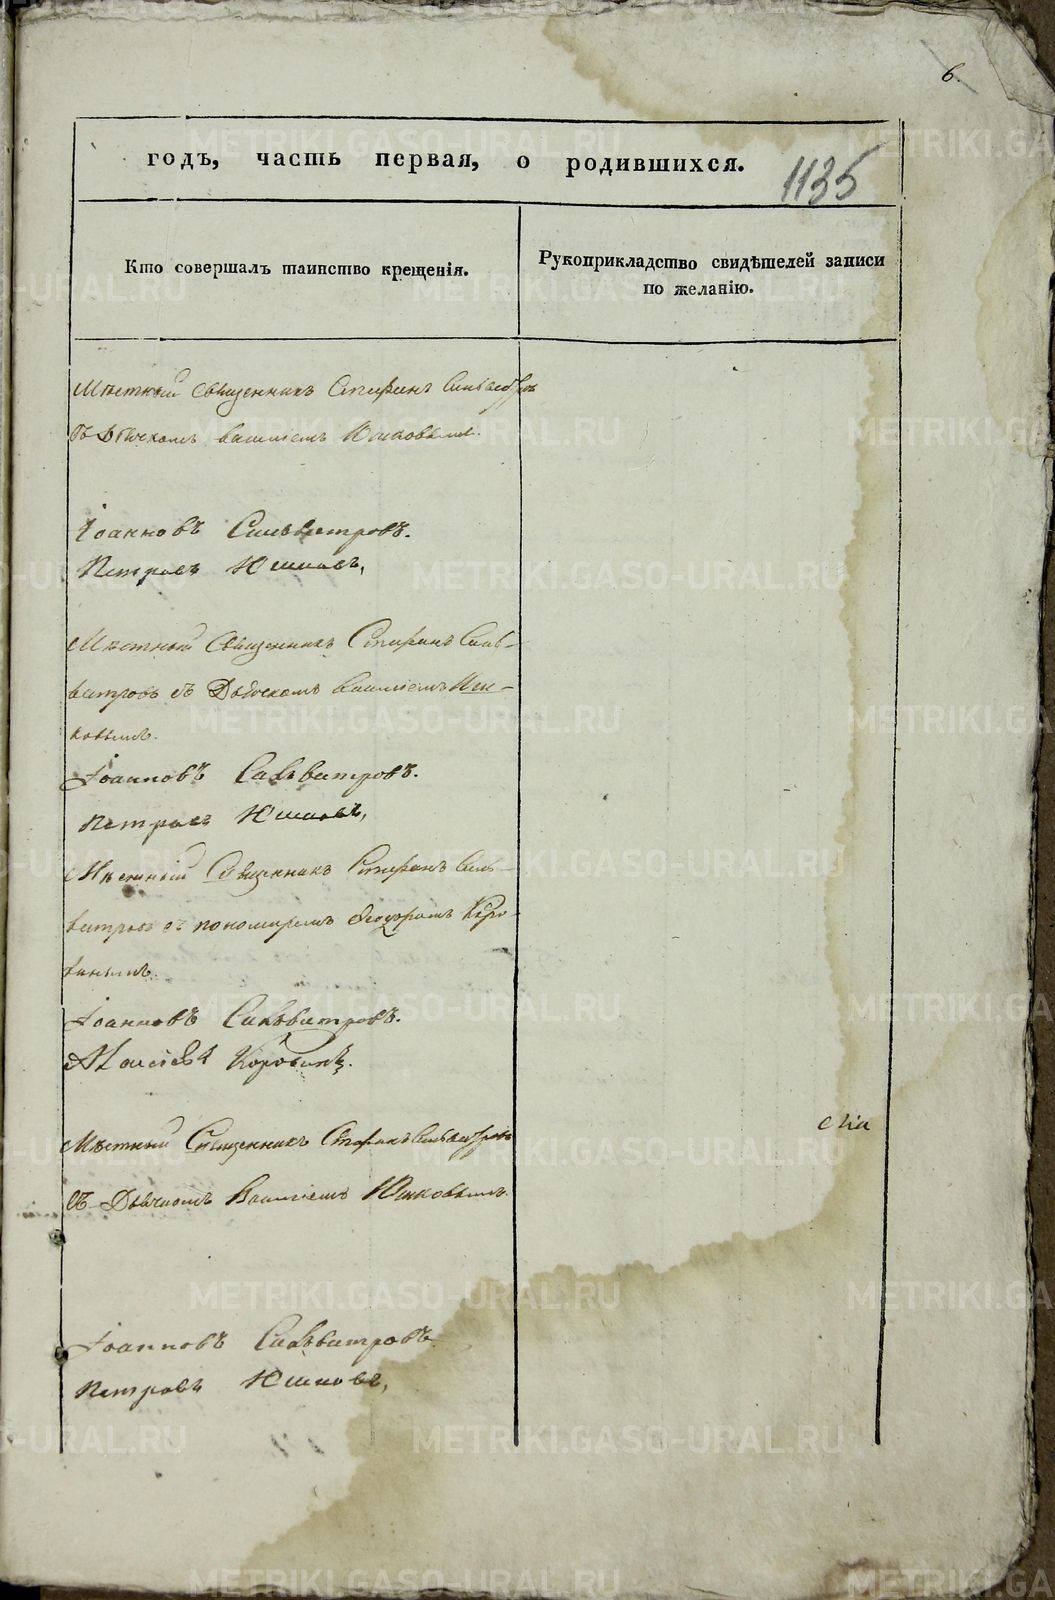 6.
годъ, часть первая, о родившихся.
1135
Кто совершалъ таинство крещенія.
Рукоприкладство свидѣтелей записи
по желанію.
Мѣстный Священникъ Стефанъ Сильвестровъ
съ Дьячкомъ Василіемъ Юшковымъ.
Іоанновъ Сильветровъ.
Петровъ Юшковъ,
Мѣстный Священникъ Стефанъ Силь-
витровъ съ Дьячкомъ Василіемъ Юш-
ковымъ.
Іоанновъ Сильвитровъ.
Петровъ Юшковъ,
Мѣстный Священникъ Стефанъ Силь-
витровъ съ пономаремъ Ѳеодоромъ Коро-
винымъ.
Іоанновъ Сильвитровъ.
Коровинъ.
Мѣстный Священникъ Стефанъ Сильвестровъ
съ Дьячкомъ Василіемъ Юшковымъ.
Іоанновъ Сильвитровъ
Петровъ Юшковъ,
METRIKI.GASO-URAL.RU